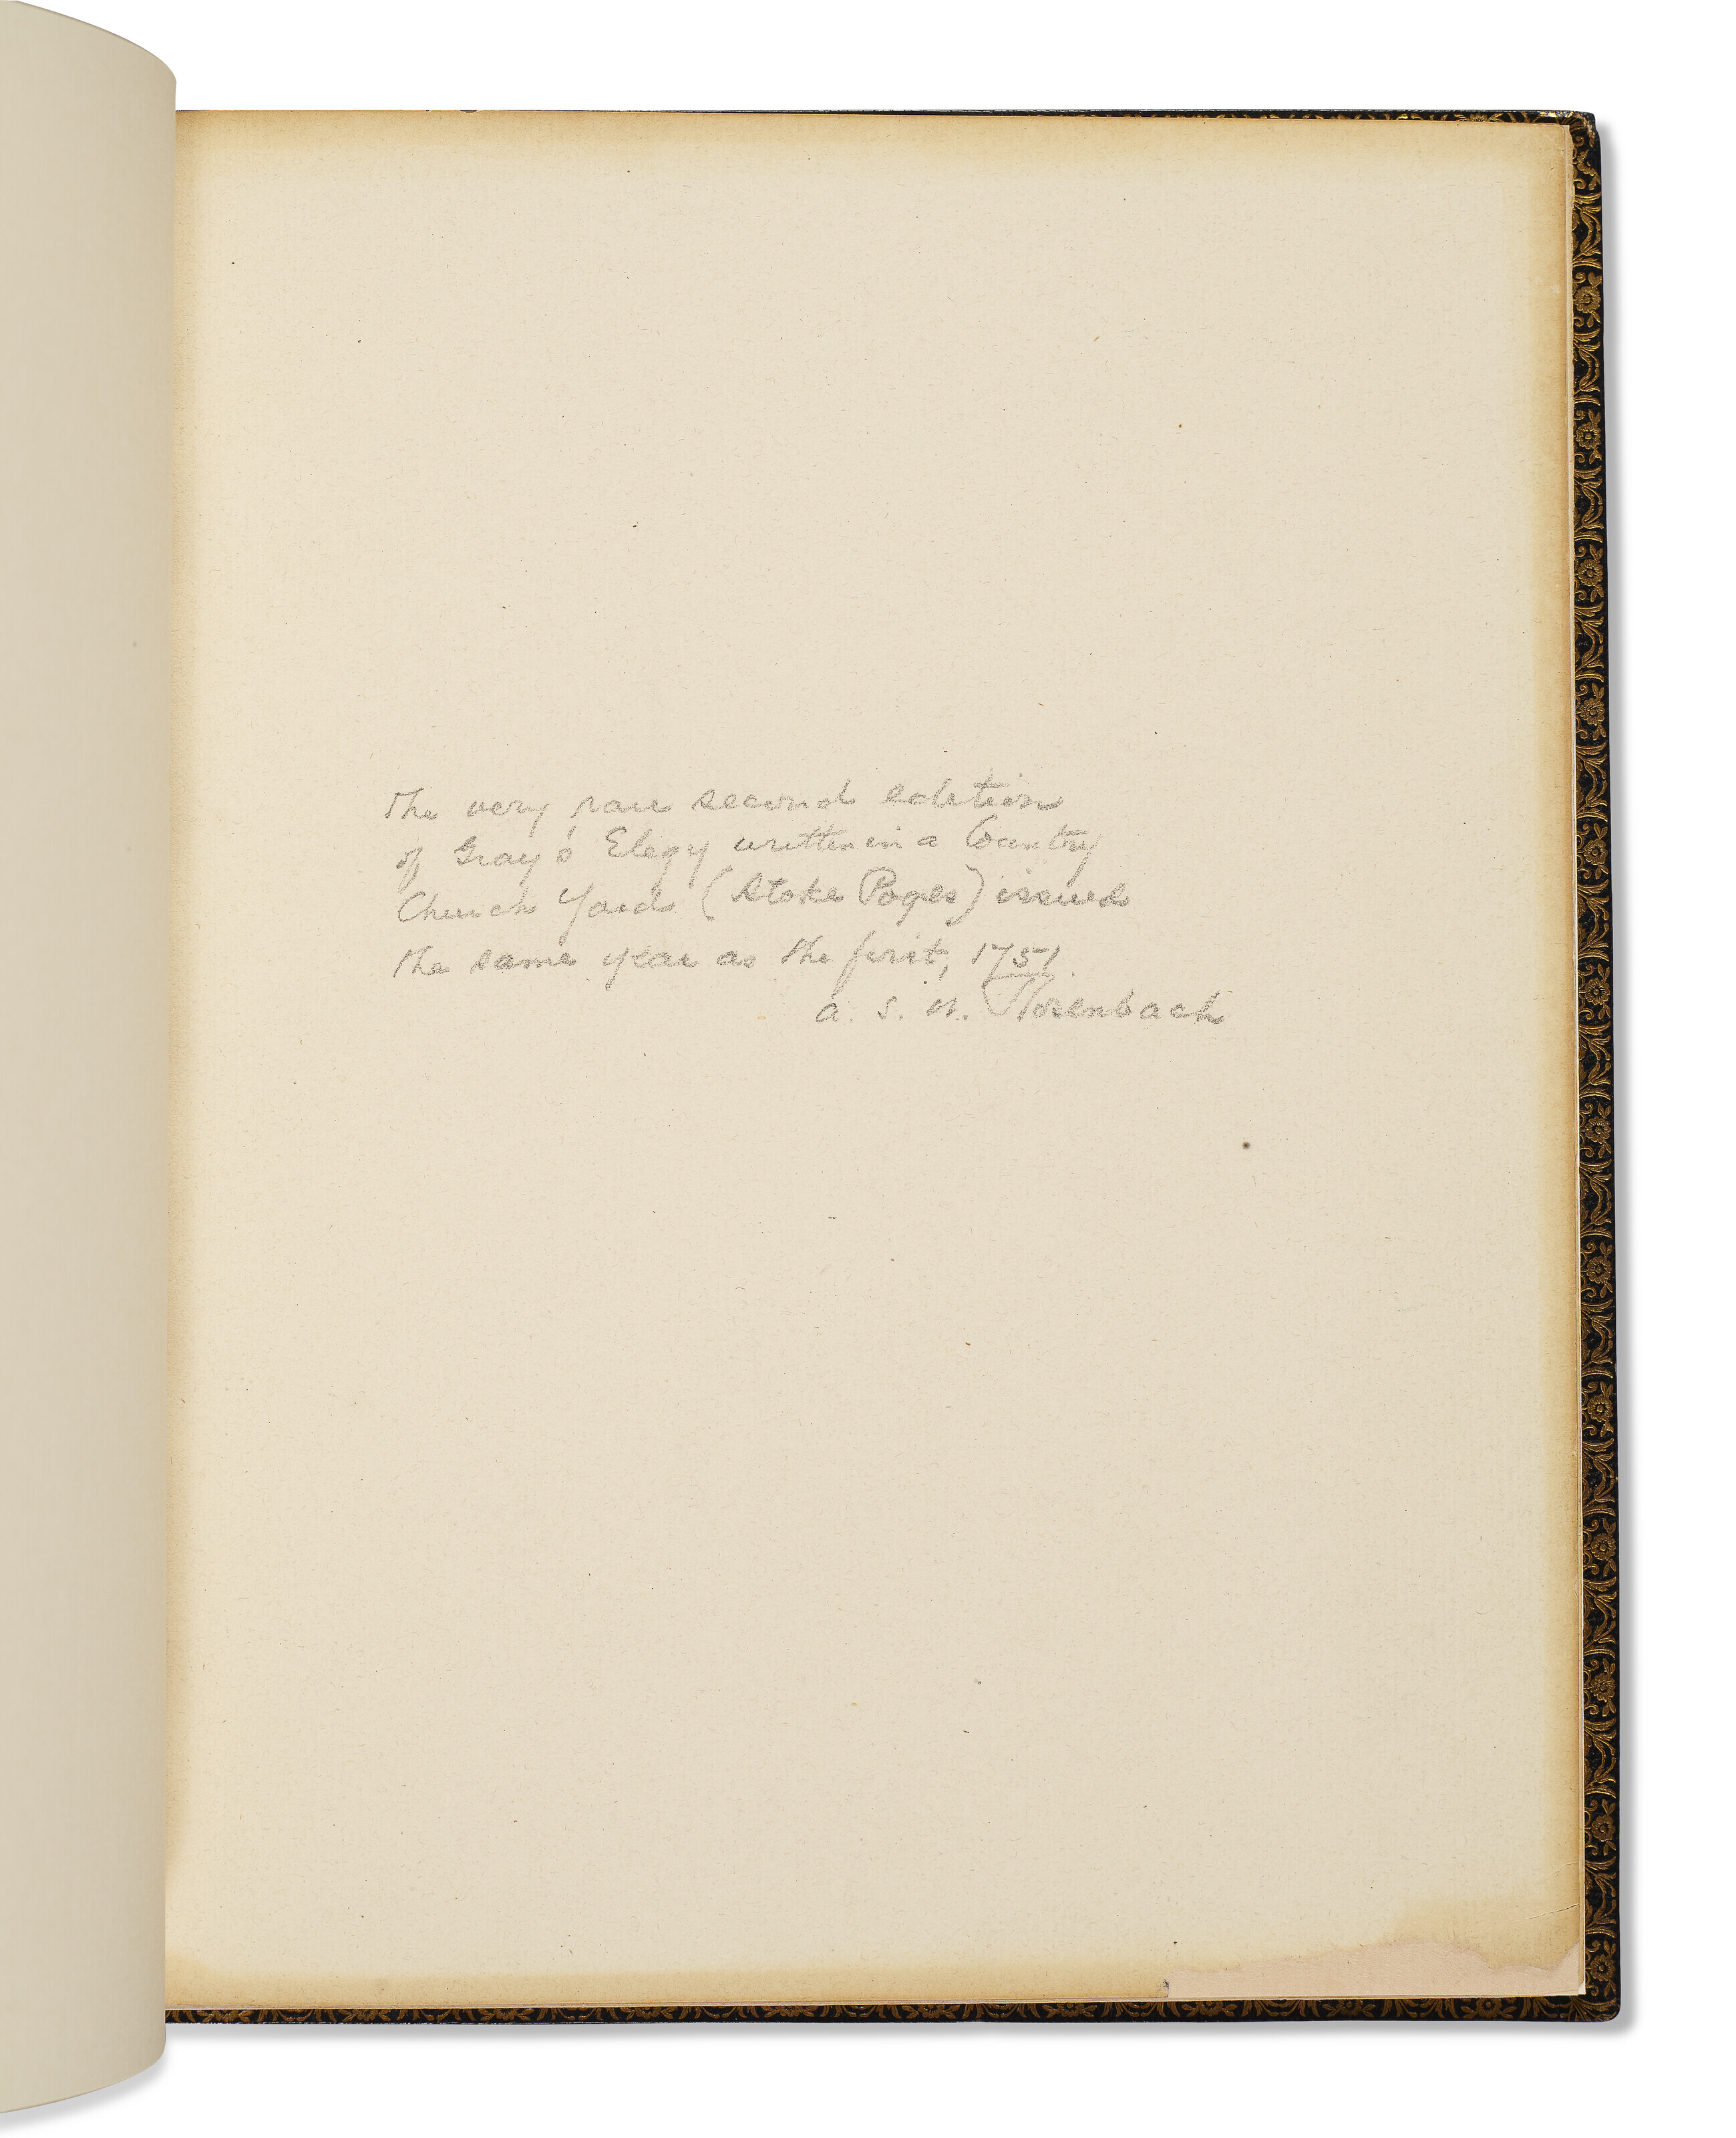 The very rare second edition
of Gray's Elegy written in a Country
Church Yard (Stoke Poges) issued
the same year as the first, 1751.
A. S. W. Rosenbach